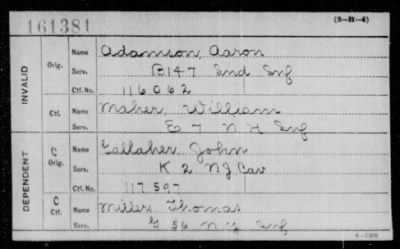 161381
(3—R—4)
INVALID
Orig.
Name Adamson, Aaron
Serv. B 147 Ind Inf
Ctf. No. 116062
Ctf.
Name Maher, William
Serv. E 7 N H Inf
DEPENDENT
C Orig.
Name Gallaher, John
Serv. K 2 NJ Cav
Ctf. No. 117597
C Ctf.
Name Miller, Thomas
Serv. G 56 N.Y. Inf